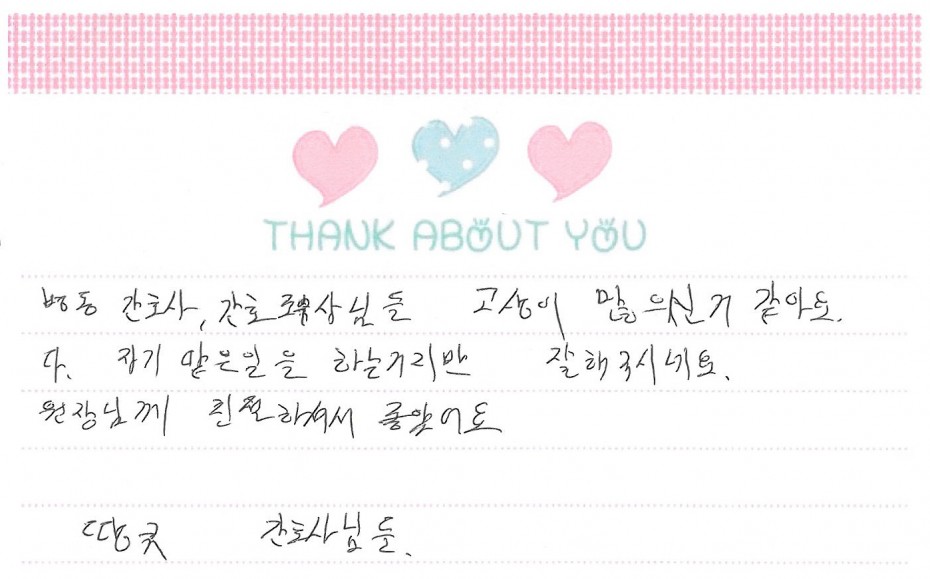 THANK ABOUT YOU
병동 간호사, 간호 님들 고생이 많으신거 같아요.
다. 자기 맡은일을 하는거지만 잘해주시네요.
원장님께 친절하셔서 좋았어요
땡큐 간호사님들.